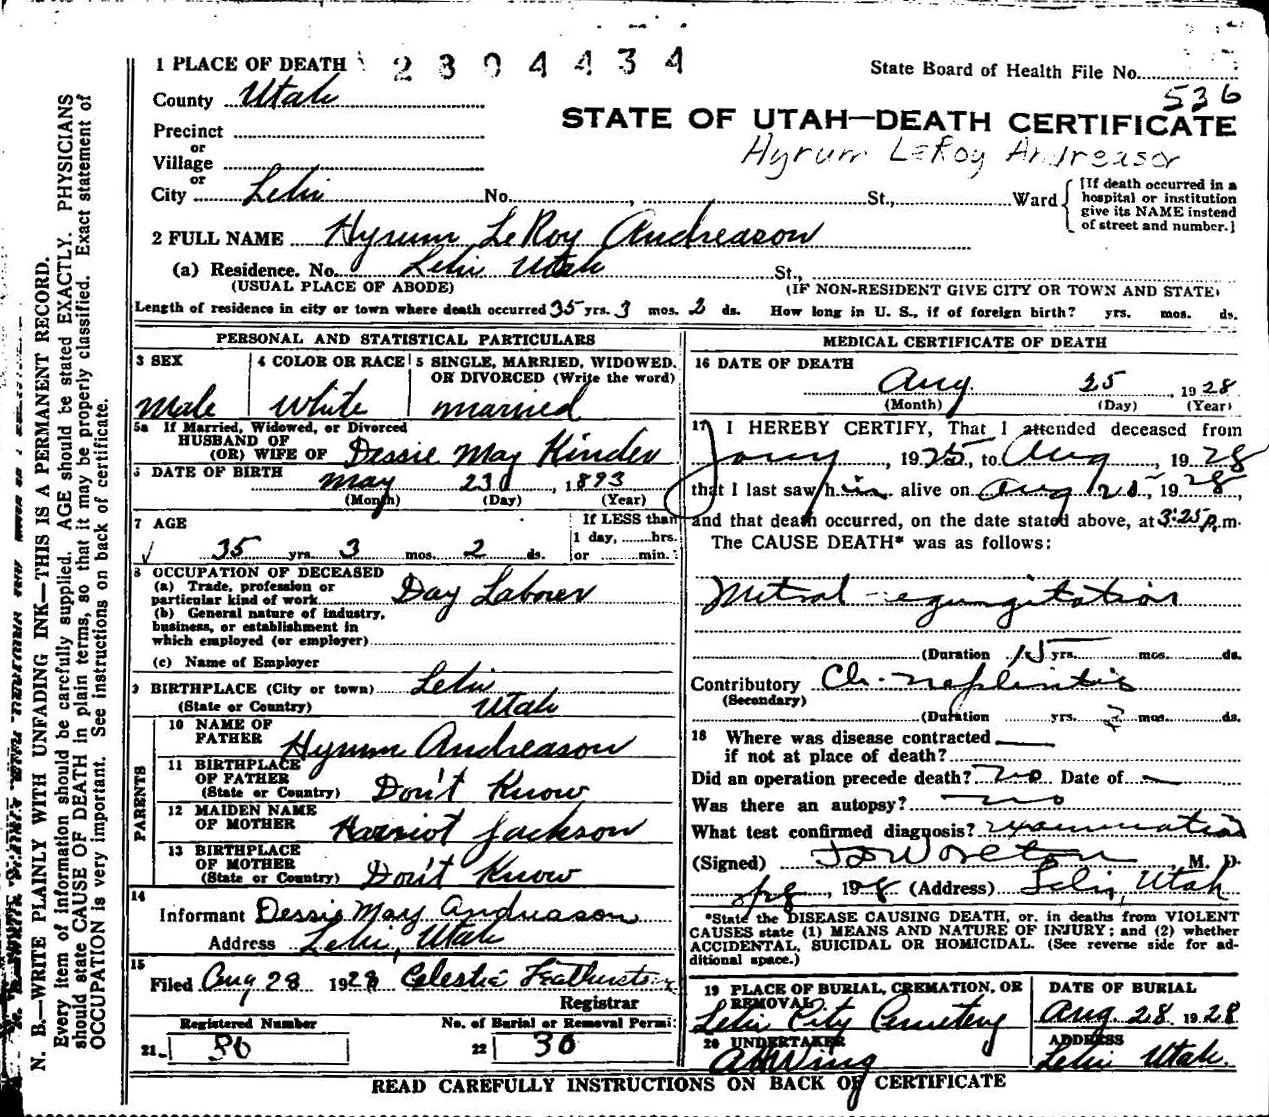 2304434
State Board of Health File No.
536
1 PLACE OF DEATH
County Utah
STATE OF UTAH—DEATH CERTIFICATE
Precinct
or
Hyrum LeRoy Andreason
Village
or
City Lehi No. St., Ward
[If death occurred in a hospital or institution give its NAME instead of street and number.]
2 FULL NAME Hyrum LeRoy Andreason
(a) Residence. No. Lehi Utah St.,
(USUAL PLACE OF ABODE) (IF NON-RESIDENT GIVE CITY OR TOWN AND STATE)
Length of residence in city or town where death occurred 35 yrs. 3 mos. 2 ds. How long in U. S., if of foreign birth? yrs. mos. ds.
PERSONAL AND STATISTICAL PARTICULARS
3 SEX
Male
4 COLOR OR RACE
White
5 SINGLE, MARRIED, WIDOWED, OR DIVORCED (Write the word)
married
5a If Married, Widowed, or Divorced
HUSBAND OF
(OR) WIFE OF Dessie May Kinder
6 DATE OF BIRTH May 23 1893
(Month) (Day) (Year)
7 AGE
35 yrs. 3 mos. 2 ds.
If LESS than
1 day, hrs.
or min.
8 OCCUPATION OF DECEASED
(a) Trade, profession or
particular kind of work Day Laborer
(b) General nature of industry,
business, or establishment in
which employed (or employer)
(c) Name of Employer
9 BIRTHPLACE (City or town) Lehi
(State or Country) Utah
PARENTS
10 NAME OF
FATHER Hyrum Andreason
11 BIRTHPLACE
OF FATHER
(State or Country) Don't Know
12 MAIDEN NAME
OF MOTHER Harriot Jackson
13 BIRTHPLACE
OF MOTHER
(State or Country) Don't Know
14
Informant Dessie May Andreason
Address Lehi, Utah
15
Filed Aug 28 1928 Celestia
Registrar
Registered Number
21 30
No. of Burial or Removal Permit
22 30
MEDICAL CERTIFICATE OF DEATH
16 DATE OF DEATH
Aug. 25 1928
(Month) (Day) (Year)
17 I HEREBY CERTIFY, That I attended deceased from
1925, to Aug, 1928
that I last saw him alive on Aug 25, 1928,
and that death occurred, on the date stated above, at 3:25 p.m.
The CAUSE DEATH* was as follows:
Mitral regurgitation
(Duration 15 yrs. mos. ds.
Contributory Ch. nephritis
(Secondary)
(Duration yrs. 2 mos. ds.
18 Where was disease contracted
if not at place of death?
Did an operation precede death? no Date of
Was there an autopsy? no
What test confirmed diagnosis? examination
(Signed) , M. D.
, 1928 (Address) Lehi, Utah
*State the DISEASE CAUSING DEATH, or. in deaths from VIOLENT
CAUSES state (1) MEANS AND NATURE OF INJURY; and (2) whether
ACCIDENTAL, SUICIDAL OR HOMICIDAL. (See reverse side for ad-
ditional space.)
19 PLACE OF BURIAL, CREMATION, OR
REMOVAL
Lehi City Cemetery
DATE OF BURIAL
Aug. 28 1928
20 UNDERTAKER
A H Wing
ADDRESS
Lehi Utah.
READ CAREFULLY INSTRUCTIONS ON BACK OF CERTIFICATE
N. B.—WRITE PLAINLY WITH UNFADING INK—THIS IS A PERMANENT RECORD.
Every item of information should be carefully supplied. AGE should be stated EXACTLY. PHYSICIANS
should state CAUSE OF DEATH in plain terms, so that it may be properly classified. Exact statement of
OCCUPATION is very important. See instructions on back of certificate.